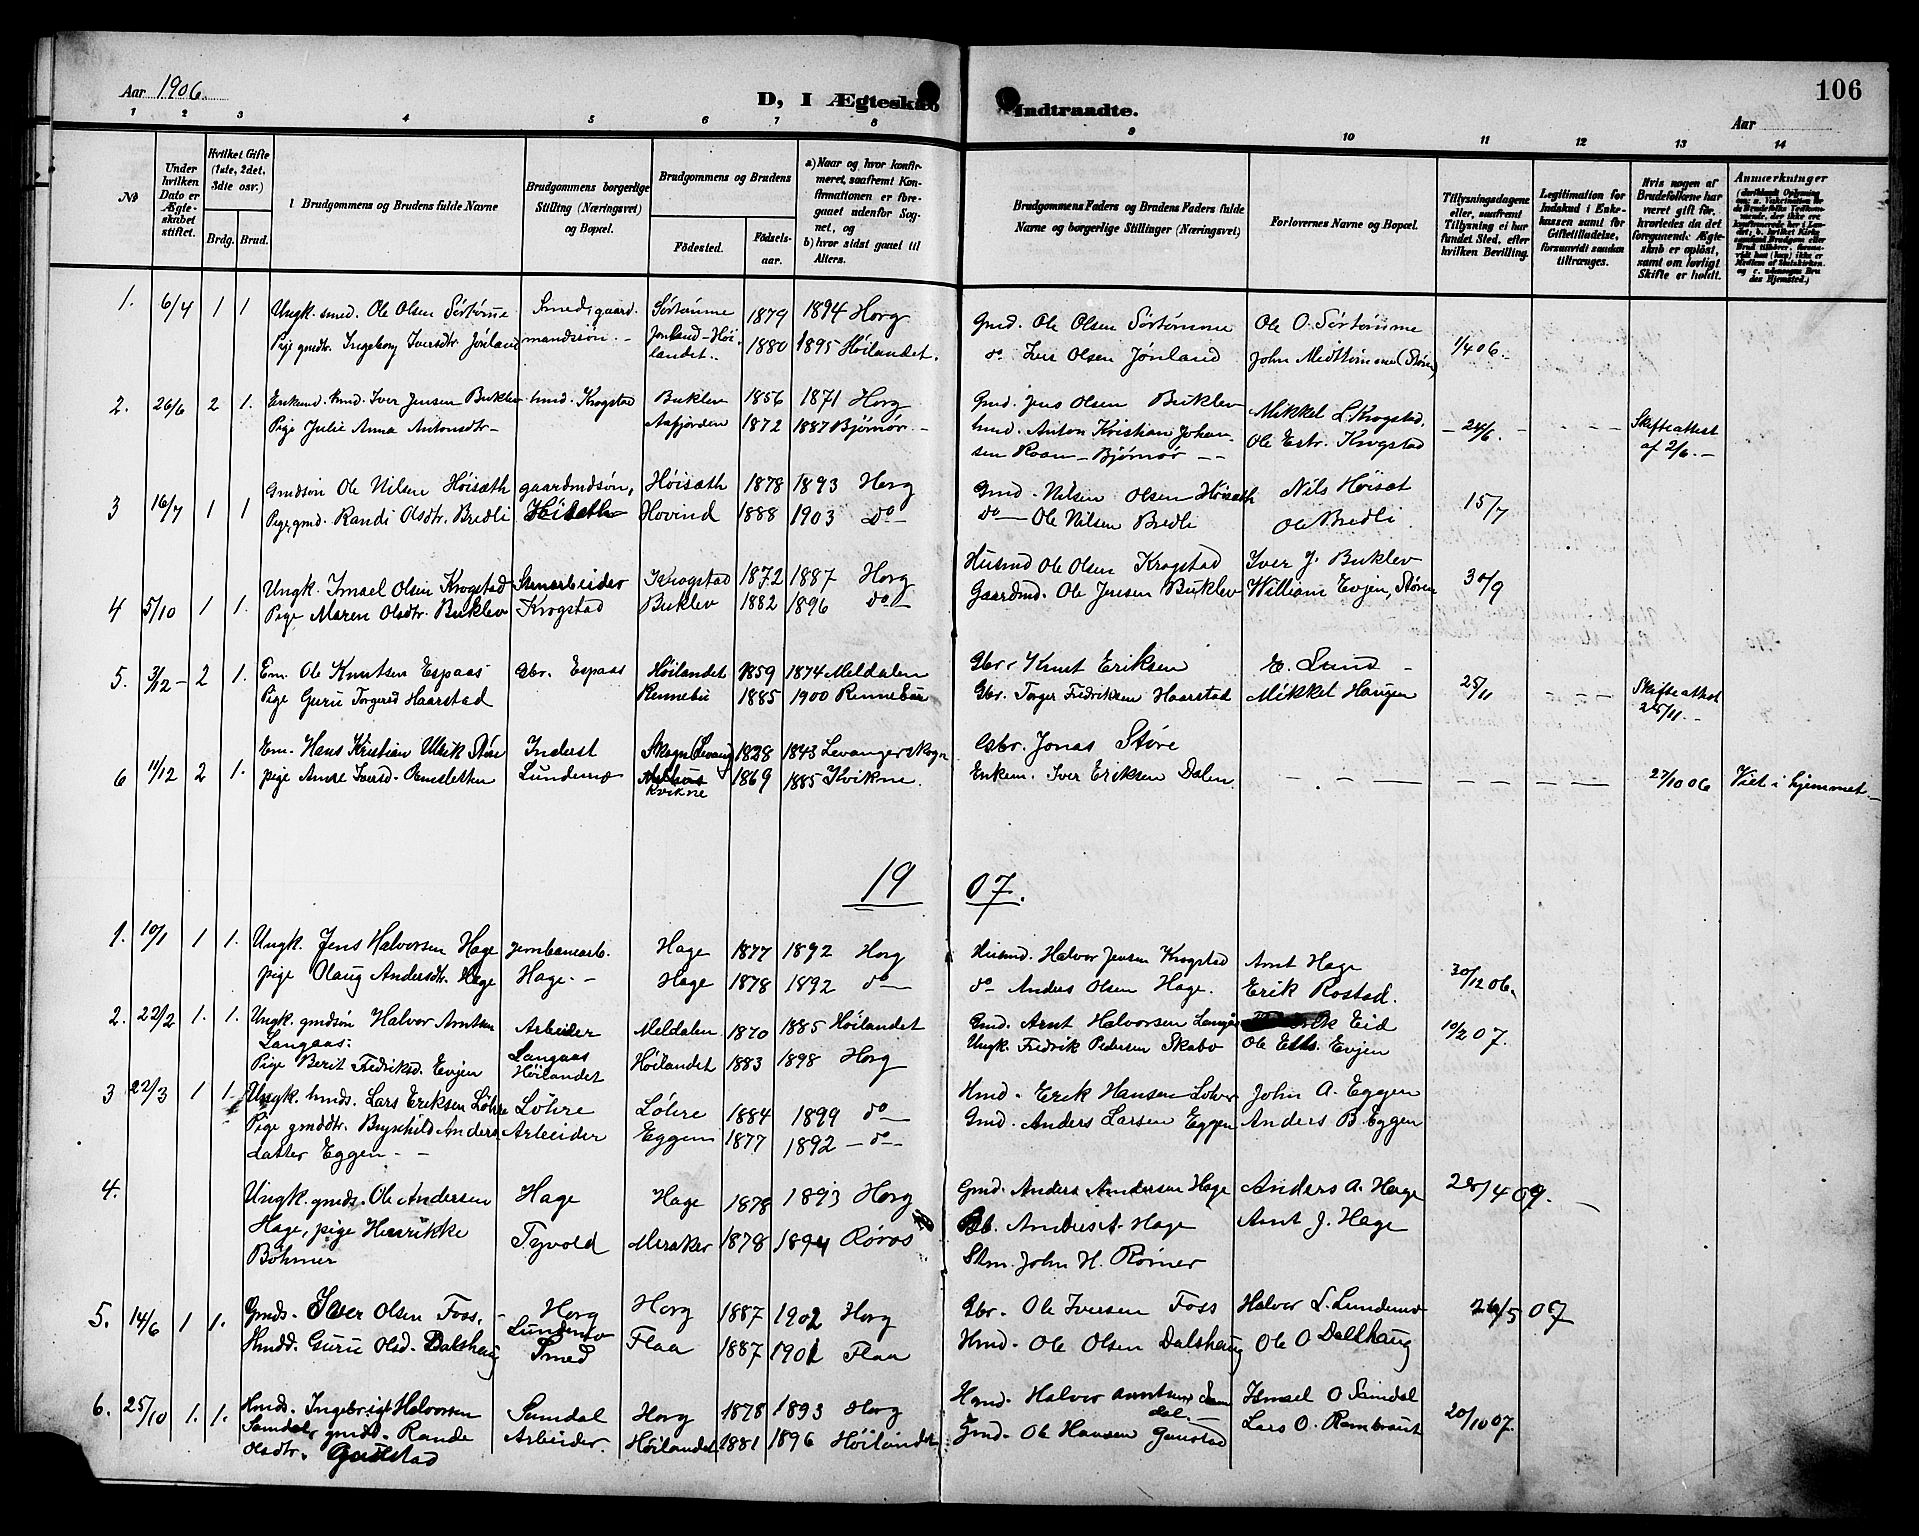 Aar 1906.
D, I Ægteskab Indtraadte.
106
Aar
1 2 3 4 5 6 7 8 9 10 11 12 13 14
№
Under hvilken Dato er Ægteskabet stiftet.
Hvilket Gifte (1ste, 2det, 3die osv.)
Brdg. Brud.
Brudgommens og Brudens fulde Navne
Brudgommens borgerlige Stilling (Næringsvei) og Bopæl.
Brudgommens og Brudens
Fødested. Fødselsaar.
a) Naar og hvor konfirmeret, saafremt Konfirmationen er foregaaet udenfor Sognet, og
b) hvor sidst gaaet til Alters.
Brudgommens Faders og Brudens Faders fulde Navne og borgerlige Stillinger (Næringsvei)
Forlovernes Navne og Bopæl.
Tillysningsdagene eller, saafremt Tillysning ei har fundet Sted, efter hvilken Bevilling.
Legitimation for Indskud i Enkekassen samt for Giftetilladelse, forsaavidt saadan tiltrænges.
Hvis nogen af Brudefolkene har været gift før, hvorledes da det foregaaende Ægteskab er opløst, samt om lovligt Skifte er holdt.
Anmærkninger
1. 6/4 1 1 Ungk. smed. Ole Olsen Sørtømme Smedsgaard. Sørtømme 1879 1894 Horg Gmd. Ole Olsen Sørtømme Ole O. Sørtømme
Pige gmdtr. Ingeborg Iversdtr Jønland mandssøn. - Jønland-Høilandet.. 1880 1895 Høilandet. do Iver Olsen Jønland John Midttømme (Støren) 1/4 06.-
2. 26/6 2 1. Enkemd. hmd. Iver Jensen Buklev hmd. Krogstad Buklev 1856 1871 Horg Gmd. Jens Olsen Buklev Mikkel L. Krogstad.
Pige Julie Anna Antonsdtr- Aafjorden 1872 1887 Bjørnør.- hmd. Anton Kristian Johan- Ole Estr. Krogstad - 24/6. - Skifteattest
sen Roan - Bjørnør - - af 2/6.-
3 16/7 1 1 Gmdsøn Ole Nilsen Høisæth gaardmdsøn, Høisæth 1878 1893 Horg Gmd. Nilsen Olsen Høisæth Nils Høisæt
Pige, gmd. Randi Olsdtr. Bredli Høisæth Hovind 1888 1903 do- do- Ole Nilsen Bredli Ole Bredli 15/7
4 5/10 1 1. Ungk. Ismael Olsen Krogstad Stenarbeider Krogstad 1872 1887 Horg Husmd Ole Olsen Krogstad Iver J. Buklev
Pige Maren Olsdtr. Buklev Krogstad Buklev 1882 1896 do- Gaardmd. Ole Jensen Buklev William Evjen, Støren 30/9
5. 3/12 - 2 1. Em. Ole Knutsen Espaas Gbr. Espaas Høilandet 1859 1874 Meldalen Gbr. Knut Eriksen E. Lund -
Pige Guru Torgersd Haarstad Rennebu 1885 1900 Rennebu Gbr. Torger Fredriksen Haarstad Mikkel Haugen 25/11 Skifteattest 25/11.-
6 11/12 2 1. Em. Hans Kristian Ulrik Støre Inderst Skogn (Levang 1828 1843 Levanger skogn Gbr. Jonas Støre
pige Anne Iversd. Lundemo Kvikne 1869 1885 Kvikne. Enkem. Iver Eriksen Dalen 27/10 06 Viet i hjemmet.-
1907.
1. 10/1 1 1. Ungk. Jens Halvorsen Hage jernbanearb. Hage 1877 1892 Horg Husmd. Halvor Jensen Krogstad Arnt Hage
pige Olaug Andersdtr. Hage Hage. - Hage 1878 1892 do- do- Anders Olsen Hage. Erik Rostad. 30/12 06.
2. 22/2 1. 1. Ungk. gmdsøn Halvor Arntsen Arbeider Meldalen 1870 1885 Høilandet Gmd. Arnt Halvorsen Langås Eid
Langaas. Langaas Ungk. Fredrik Pedersen Skabo Ole Evjen 10/2 07.
Pige Berit Fredriksd. Evjen Høilandet Høilandet 1883 1898 Horg
3 22/3 1 1. Ungk. hmds. Lars Eriksen Løhre Løhre Løhre 1884 1899 do- Hmd. Erik Hansen Løhre John A. Eggen
Pige gmddtr. Brynhild Anders Arbeider Eggen 1877 1892 - do- Gmd. Anders Larsen Eggen Anders B. Eggen
datter Eggen - -
4. Ungk. gmds. Ole Andersen Hage Hage 1878 1893 Horg Gmd. Anders Andersen Hage Anders A. Hage 28/4 09.
Hage, pige Henrikke Tyvold Meraker 1878 1894 Røros Andreas A. Hage Arnt J. Hage
Bøhmer Stm. John H. Rømer
5. 14/6 1 1. Gmds. Iver Olsen Foss. - Horg Horg 1887 1902 Horg Gbr. Ole Iversen Foss Halvor L. Lundemo 26/5 07
Hmdd. Guru Olsd. Dalshaug Lundemo Smed Flaa 1887 1901 Flaa Hmd. Ole Olsen Dalshaug Ole O Dalshaug
6. 25/10 1. 1. Hmds. Ingebrigt Halvorsen Samdal Horg 1878 1893 Horg Hmd. Halvor Arntsen Sam Ismael O Samdal
Samdal, gmdt. Rande Arbeider. Høilandet 1881 1896 Høilandet dal. - Lars O. Rambraut 20/10 07.
Olsdtr. Gaustad Gmd. Ole Hansen Gaustad